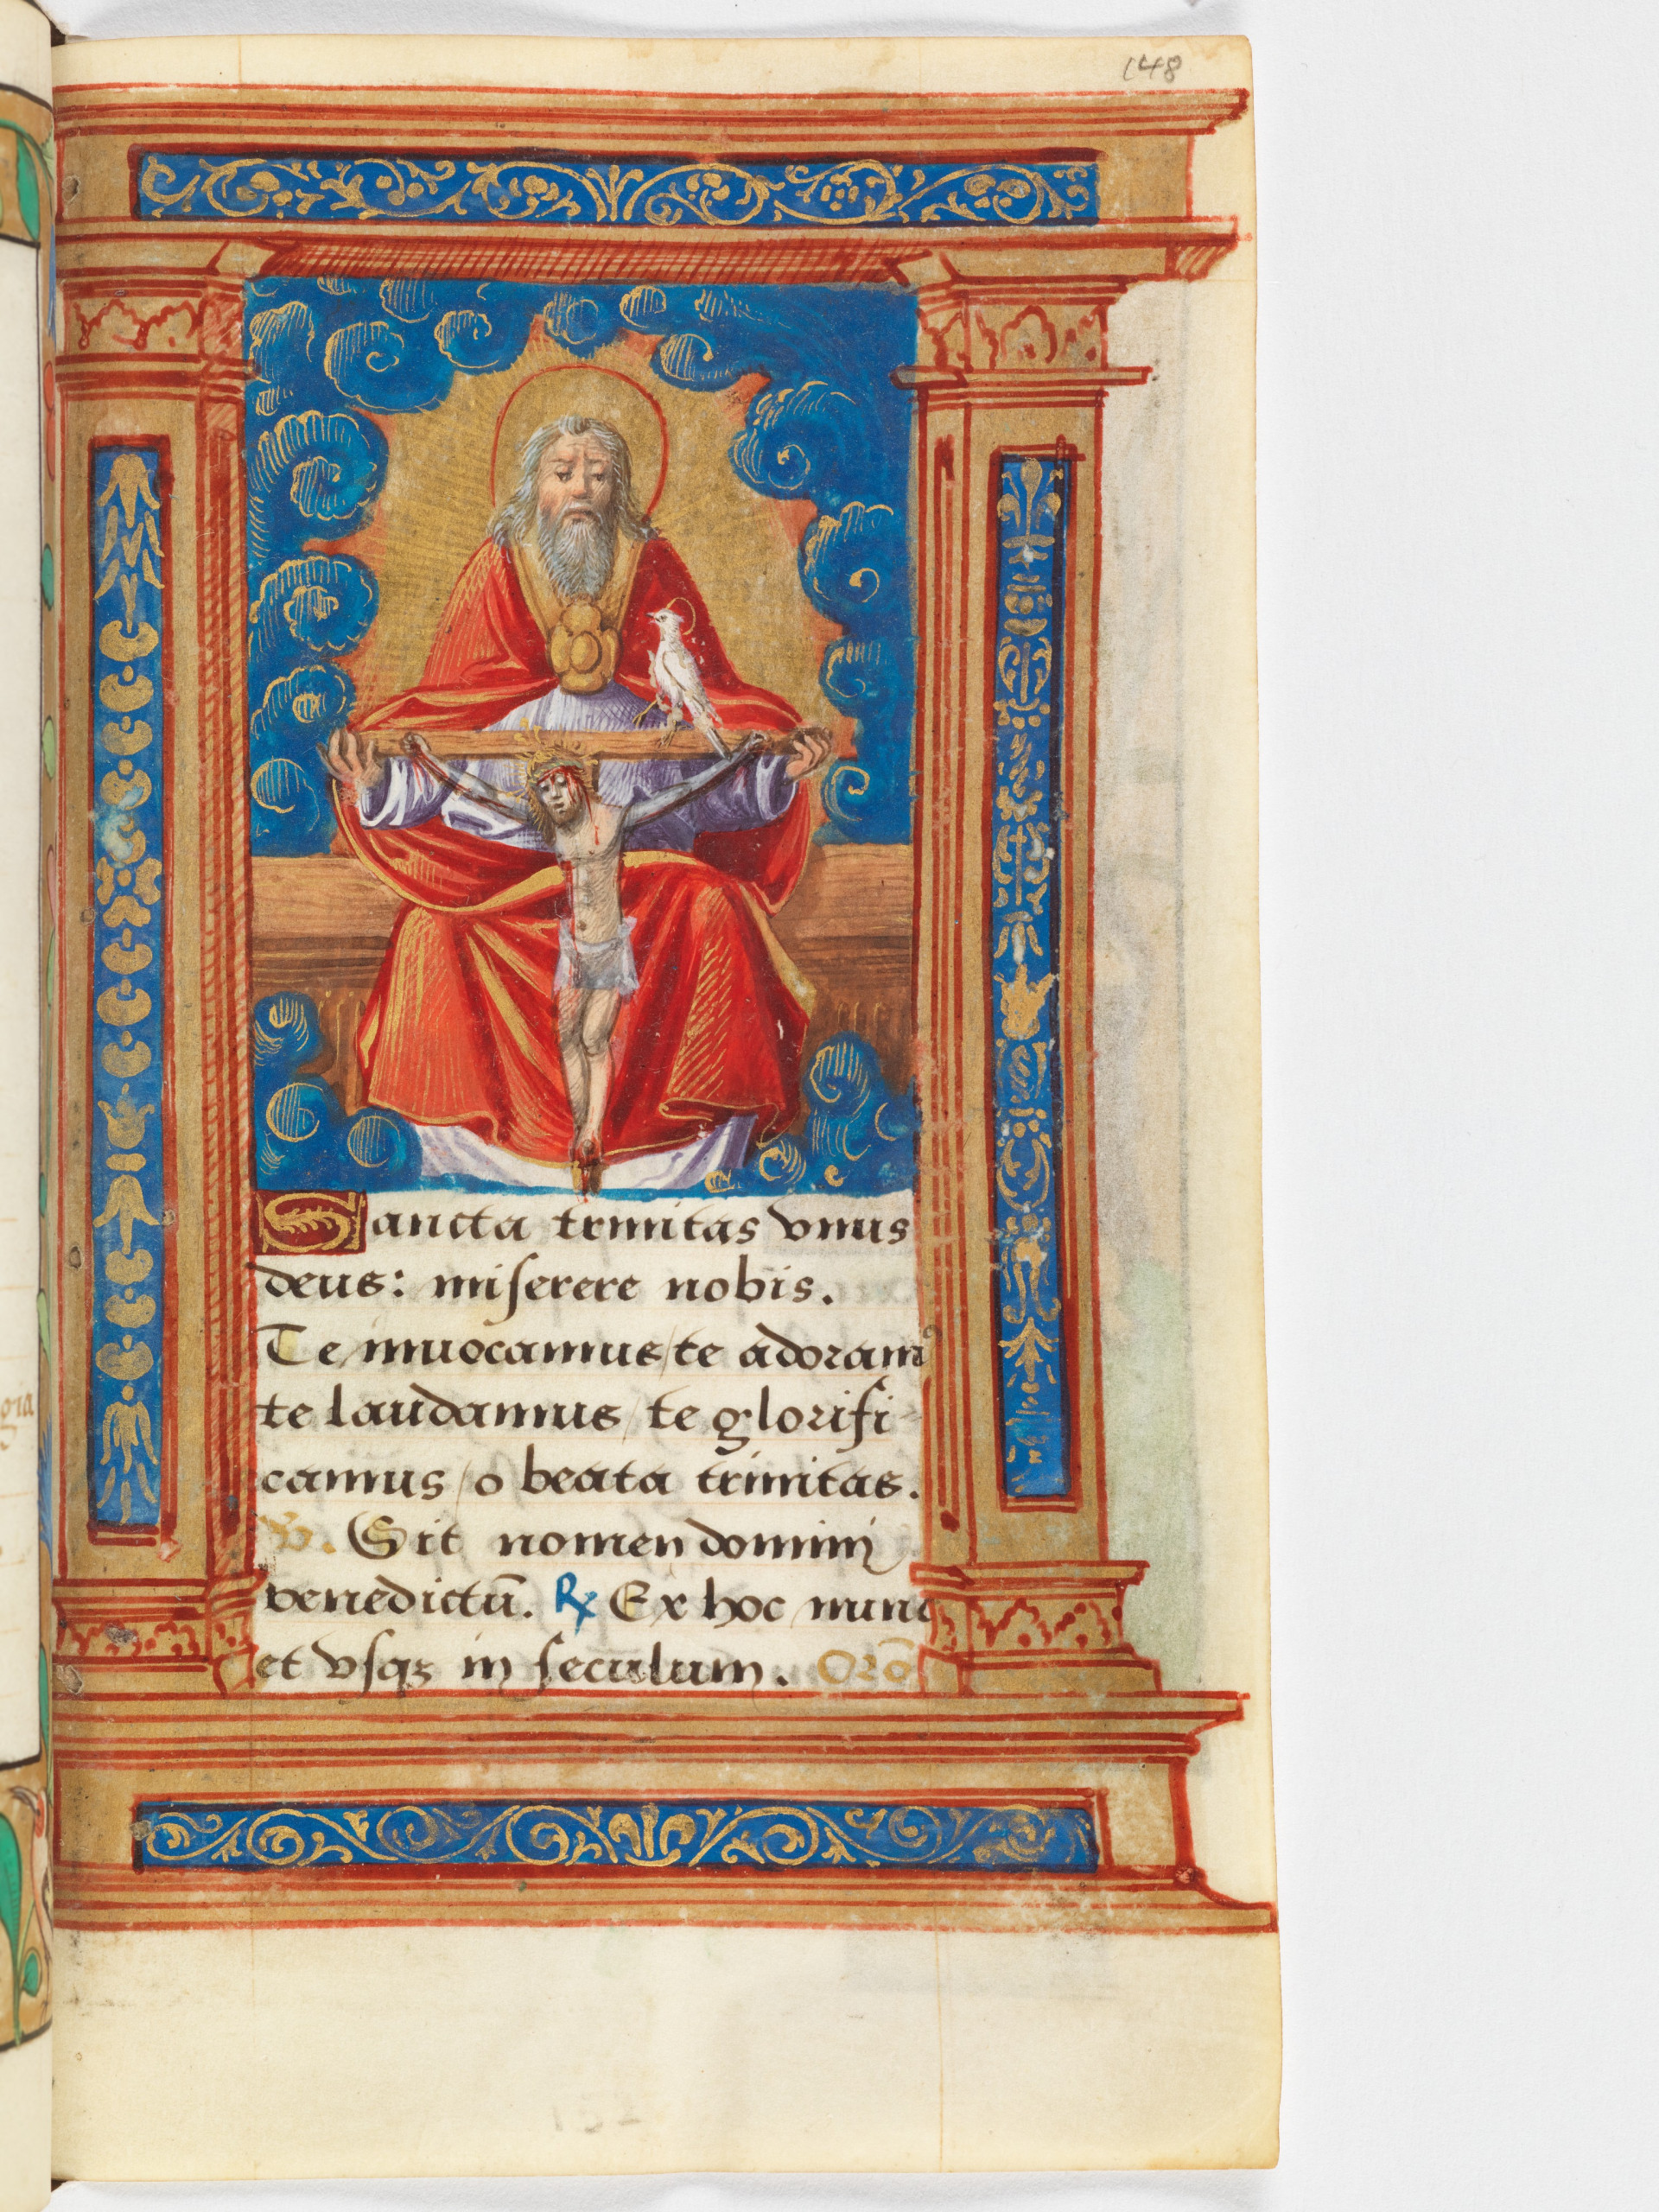 148
Sancta trinitas vnus
deus: miſerere nobis.
Te inuocamus/te adoram⁹
te laudamus/te glorifi-
camus/o beata trinitas.
V. Sit nomen domini
benedictū. ℞ Ex hoc nunc
et vſqꝫ in ſeculum. Orō